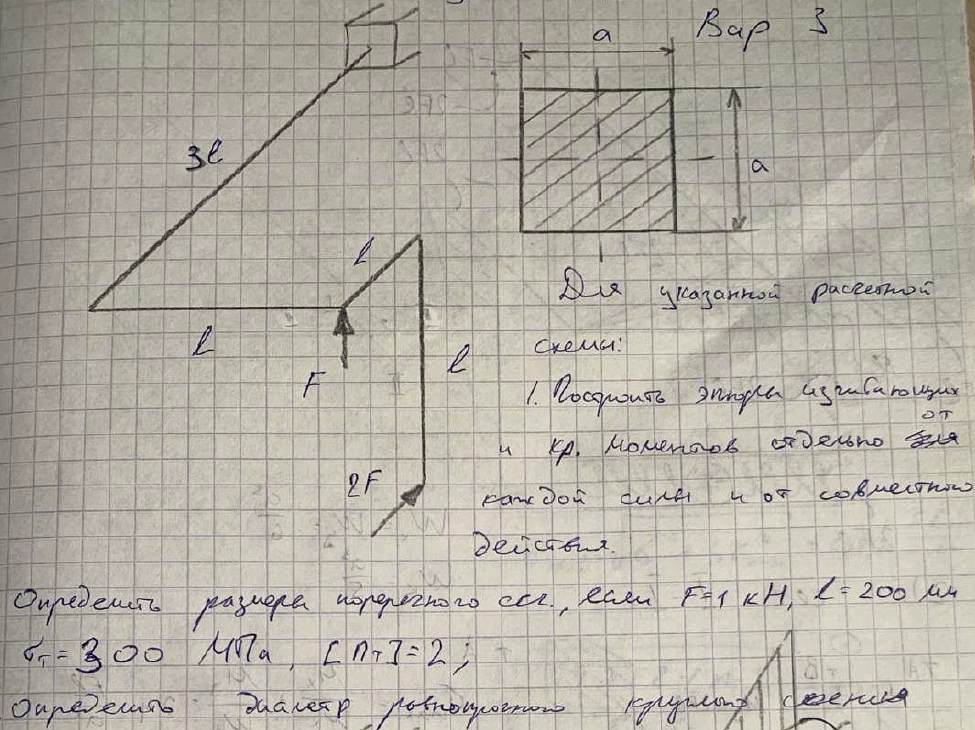 Вар 3
a
a
3l
l
l
l
F
2F
Для указанной расчетной
схемы:
1. Построить эпюры изгибающих
и кр. моментов отдельно от
каждой силы и от совместного
действия.
Определить размеры поперечного сеч., если F=1 кН, l=200 мм
σт=300 МПа, [nт]=2;
Определить диаметр равнопрочного круглого сечения